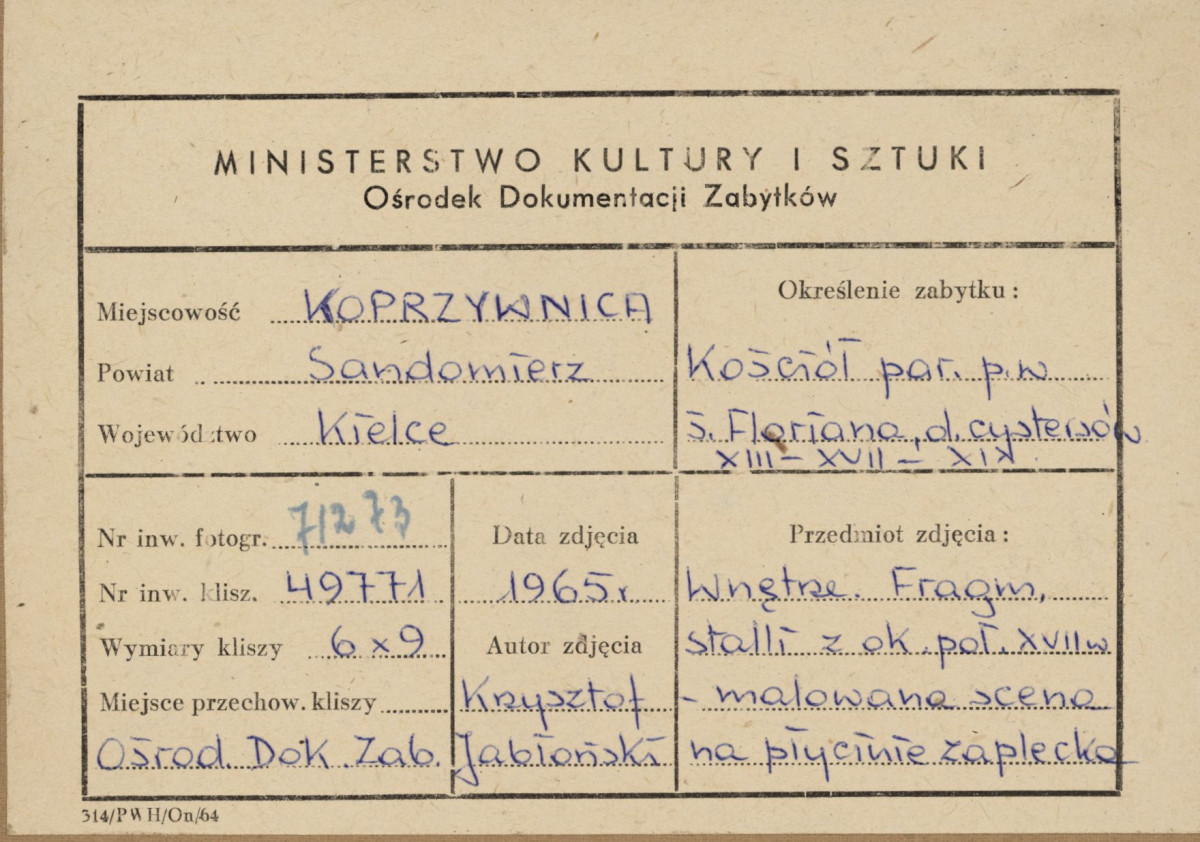 MINISTERSTWO KULTURY I SZTUKI
Ośrodek Dokumentacji Zabytków
Miejscowość KOPRZYWNICA
Powiat Sandomierz
Województwo Kielce
Określenie zabytku:
Kościół par. p.w
ś. Floriana, d. cystersów
XIII – XVII – XIX
Nr inw. fotogr. 71273
Nr inw. klisz. 49771
Wymiary kliszy 6 x 9
Miejsce przechow. kliszy
Ośrod. Dok. Zab.
Data zdjęcia
1965 r
Autor zdjęcia
Krzysztof
Jabłoński
Przedmiot zdjęcia:
Wnętrze. Fragm.
stalli z ok. poł. XVII w
- malowana scena
na płycinie zaplecka
314/PWH/On/64